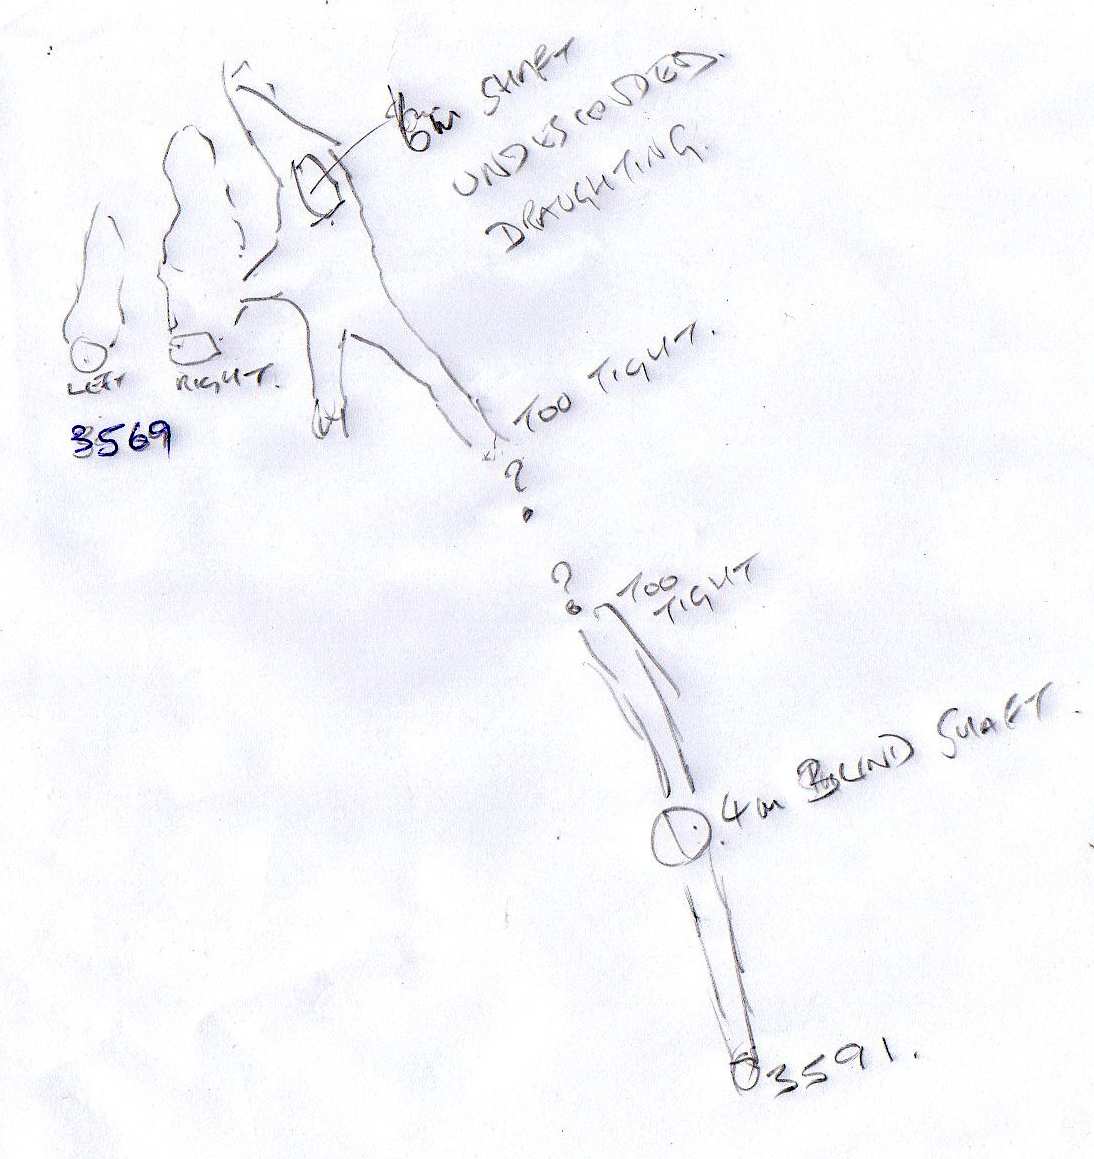 6m SHAFT
UNDESCENDED.
DRAUGHTING.
LEFT
RIGHT.
3569
TOO TIGHT.
?
?
TOO
TIGHT
4m BLIND SHAFT.
3591.